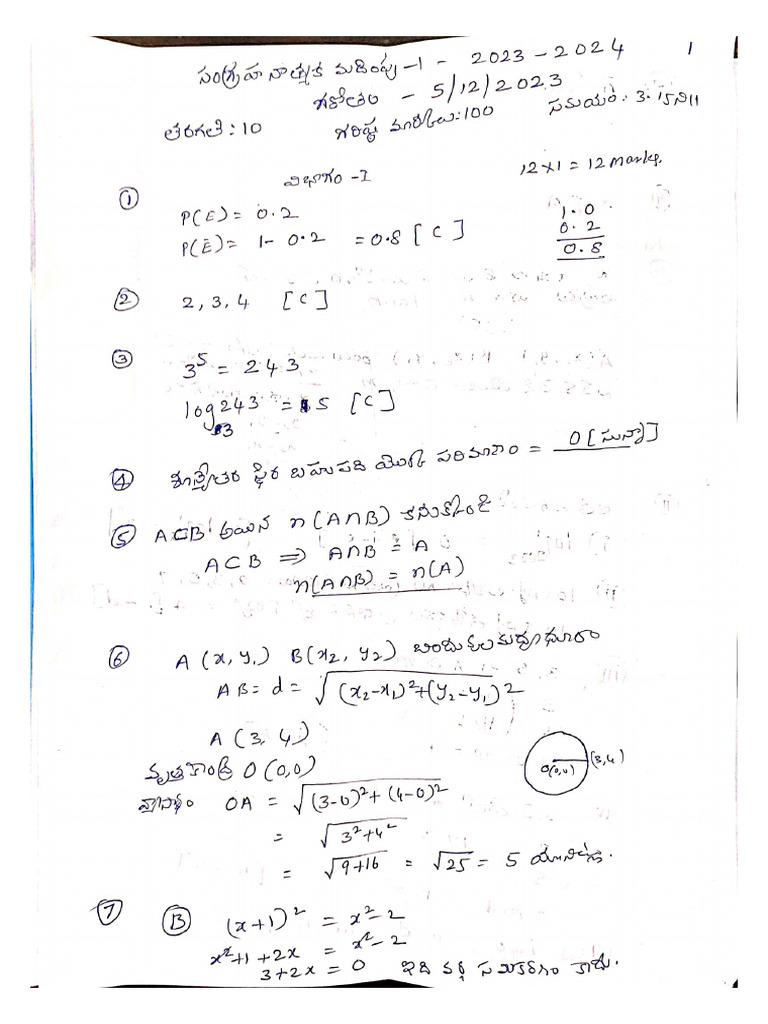 సంగ్రహణాత్మక మదింపు -1 - 2023-2024 1
గణితం - 5/12/2023
తరగతి: 10 గరిష్ఠ మార్కులు:100 సమయం: 3.15ని॥
విభాగం -I 12×1 = 12 marks.
① P(E) = 0.2
P(Ē) = 1- 0.2 = 0.8 [C]
1.0
0.2
0.8
② 2, 3, 4 [C]
③ 3⁵ = 243
log₃243 = 5 [C]
④ శూన్యేతర స్థిర బహుపది యొక్క పరిమాణం = 0 [సున్నా]
⑤ A⊂B అయిన n(A∩B) కనుక్కోండి
A⊂B ⟹ A∩B = A
n(A∩B) = n(A)
⑥ A(x, y₁) B(x₂, y₂) బిందువుల మధ్య దూరం
AB = d = √(x₂-x₁)²+(y₂-y₁)2
A (3, 4)
వృత్త కేంద్రం O (0,0)
O(0,0) (3,4)
వ్యాసార్థం OA = √(3-0)²+(4-0)²
= √3²+4²
= √9+16 = √25 = 5 యూనిట్లు.
⑦ Ⓑ (x+1)² = x²-2
x²+1+2x = x²-2
3+2x = 0 ఇది వర్గ సమీకరణం కాదు.